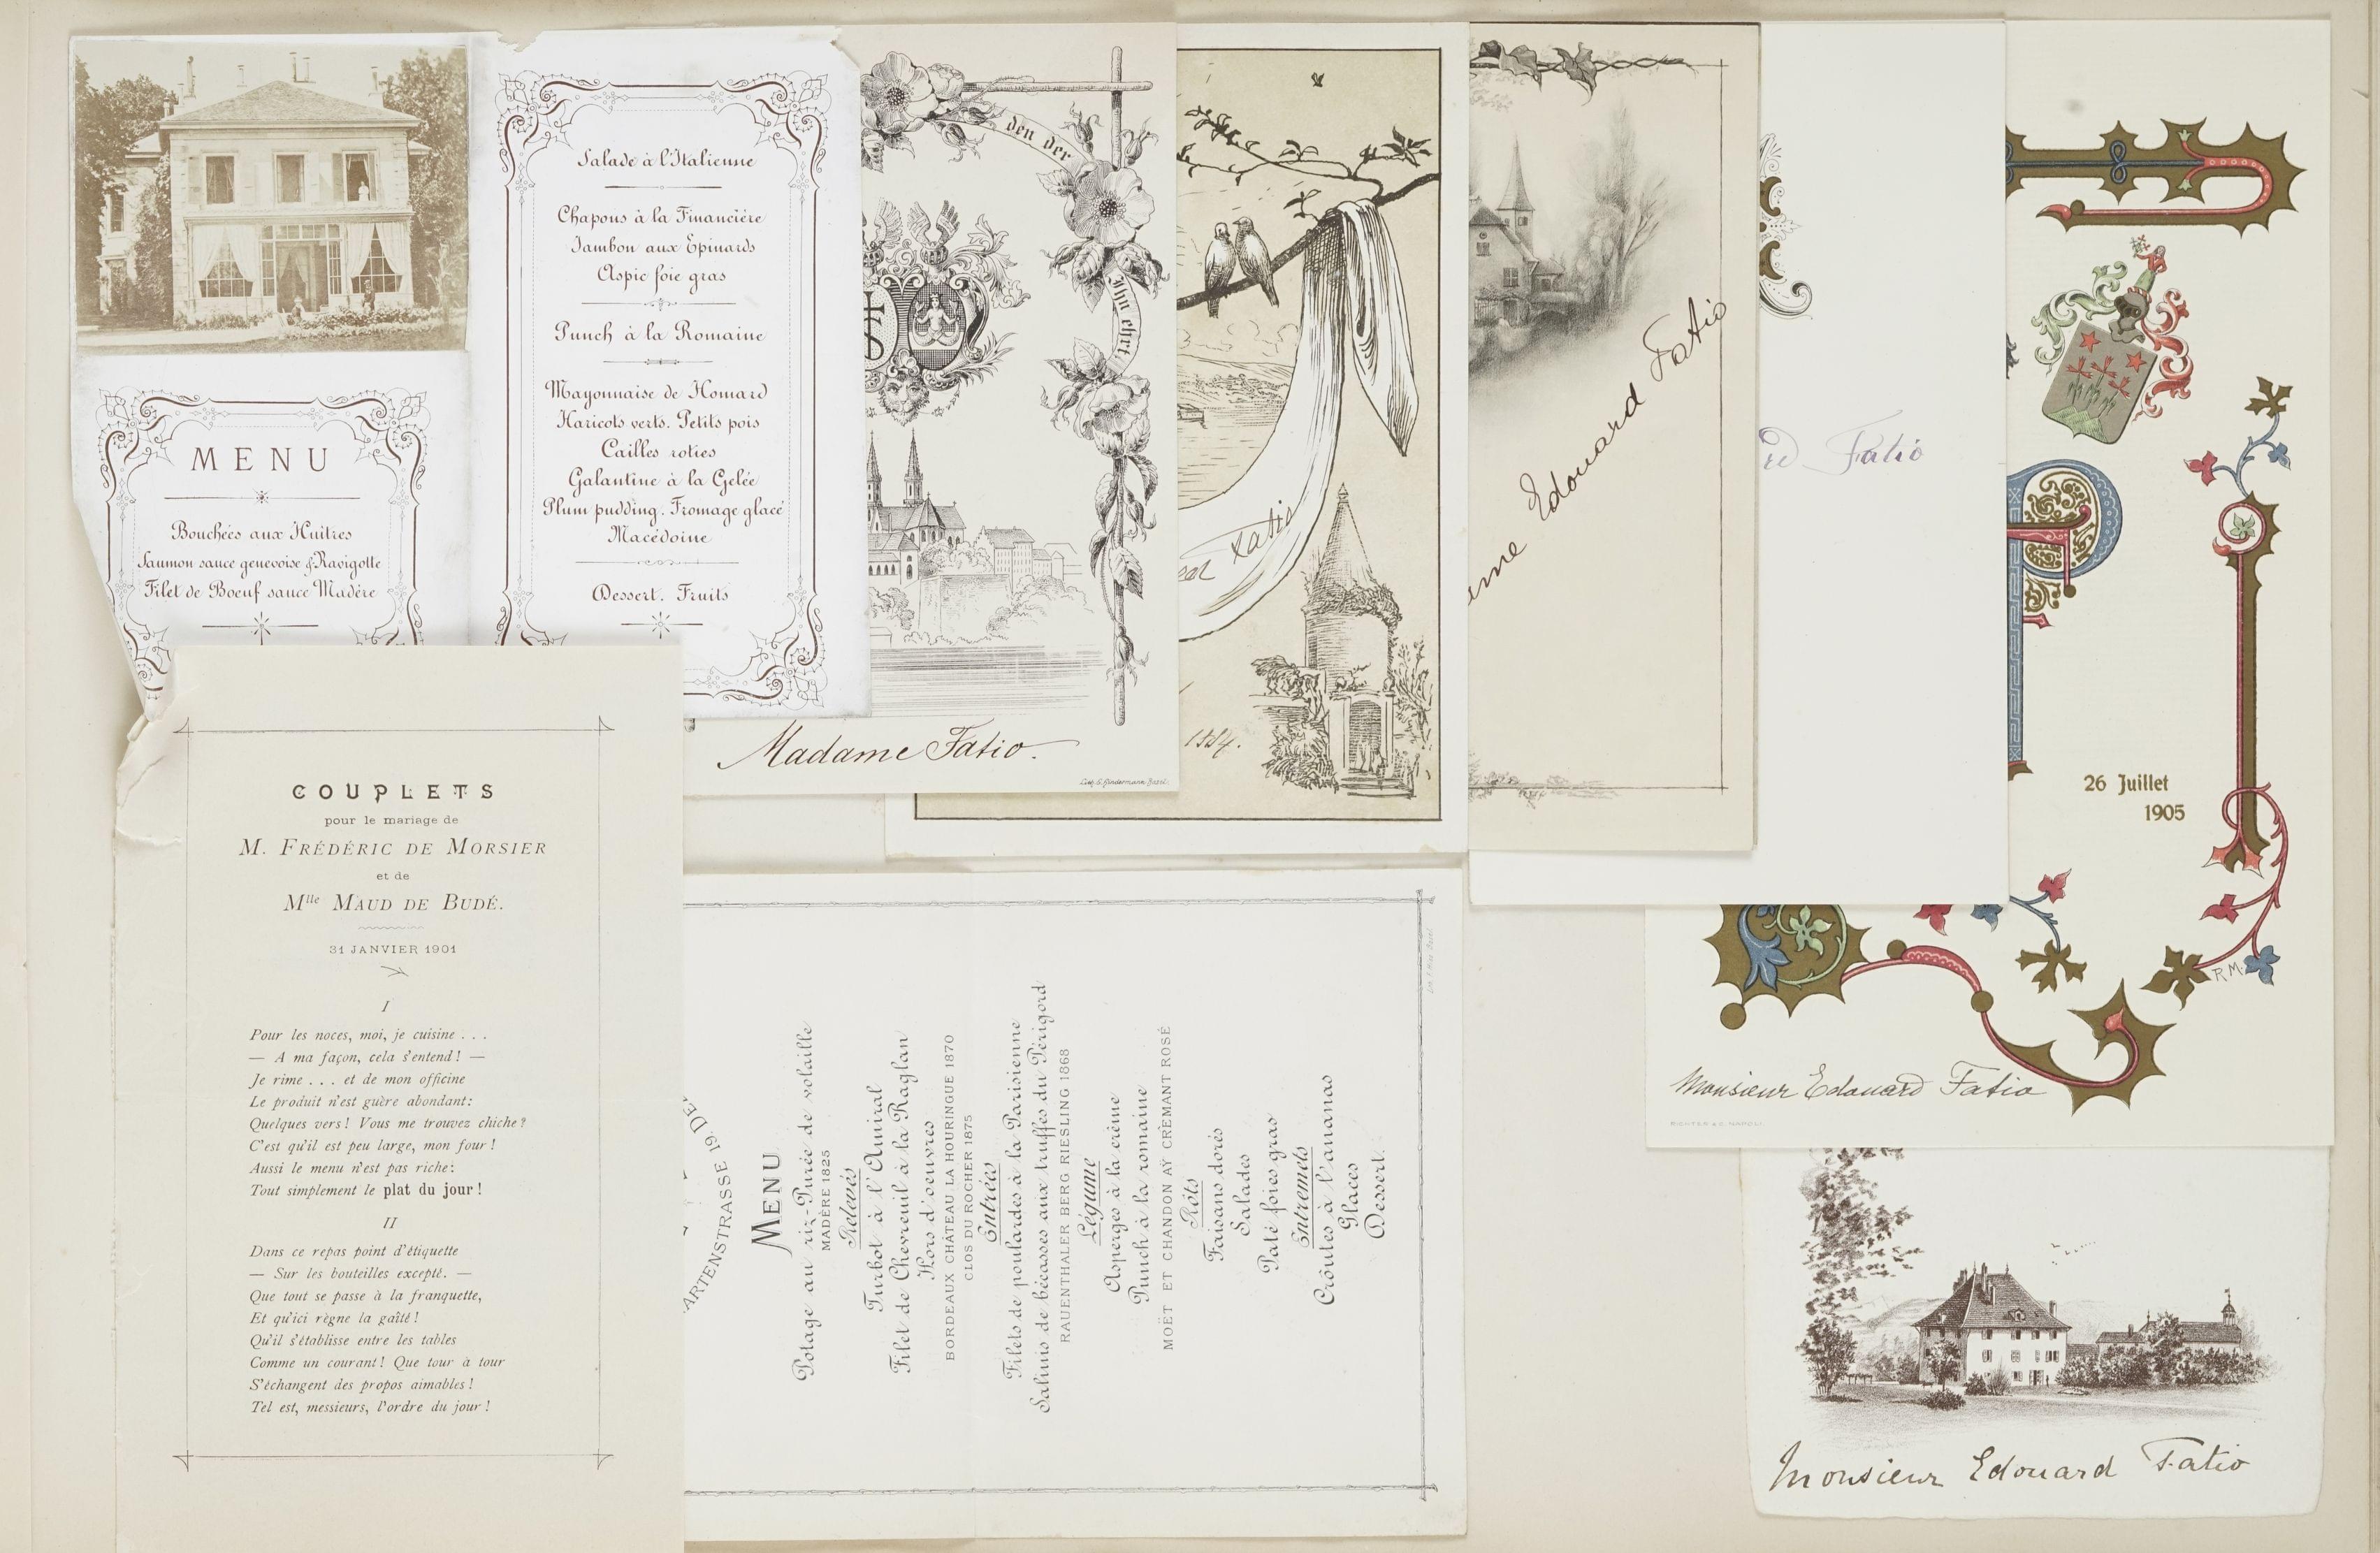 MENU
Bouchées aux Huîtres
Saumon sauce genevoise & Ravigotte
Filet de Boeuf sauce Madère
Salade à l'Italienne
Chapons à la Financière
Jambon aux Epinards
Aspic foie gras
Punch à la Romaine
Mayonnaise de Homard
Haricots verts. Petits pois
Cailles roties
Galantine à la Gelée
Plum pudding. Fromage glacé
Macédoine
Dessert. Fruits
den der
Ihn ehrt
Madame Fatio.
Lith. G. Bindermann Basel.
Fatio
1884.
Edouard Fatio
Fatio
26 Juillet
1905
R M.
Monsieur Edouard Fatio
RICHTER & C. NAPOLI
Monsieur Edouard Fatio
COUPLETS
pour le mariage de
M. FRÉDÉRIC DE MORSIER
et de
Mlle MAUD DE BUDÉ.
31 JANVIER 1901
I
Pour les noces, moi, je cuisine . . .
— A ma façon, cela s'entend! —
Je rime . . . et de mon officine
Le produit n'est guère abondant:
Quelques vers! Vous me trouvez chiche?
C'est qu'il est peu large, mon four!
Aussi le menu n'est pas riche:
Tout simplement le plat du jour!
II
Dans ce repas point d'étiquette
— Sur les bouteilles excepté. —
Que tout se passe à la franquette,
Et qu'ici règne la gaîté!
Qu'il s'établisse entre les tables
Comme un courant! Que tour à tour
S'échangent des propos aimables!
Tel est, messieurs, l'ordre du jour!
ARTENSTRASSE 19. DE
MENU
Potage au riz-Purée de volaille
MADÈRE 1825
Relevés
Turbot à l'Amiral
Filet de Chevreuil à la Raglan
Hors d'oeuvres
BORDEAUX CHÂTEAU LA HOURINGUE 1870
CLOS DU ROCHER 1875
Entrées
Filets de poulardes à la Parisienne
Salmis de bécasses aux truffes du Périgord
RAUENTHALER BERG RIESLING 1868
Légume
Asperges à la crème
Punch à la romaine
MOËT ET CHANDON AŸ CRÈMANT ROSÉ
Rôts
Faisans dorés
Salades
Paté foies gras
Entremets
Croûtes à l'ananas
Glaces
Dessert.